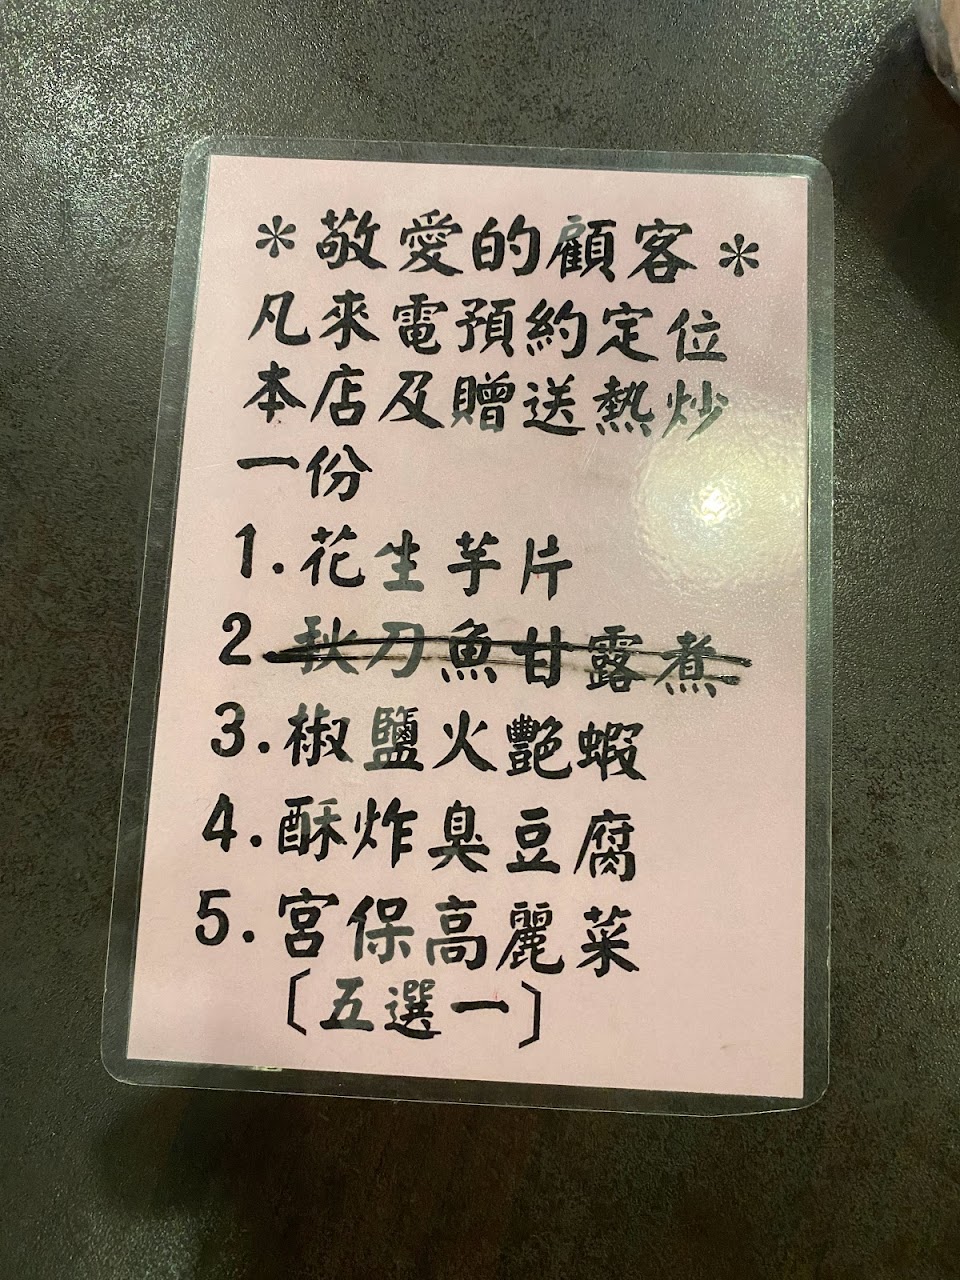 *敬愛的顧客*
凡來電預約定位
本店及贈送熱炒
一份
1.花生芋片
2.秋刀魚甘露煮
3.椒鹽火艷蝦
4.酥炸臭豆腐
5.宮保高麗菜
〔五選一〕